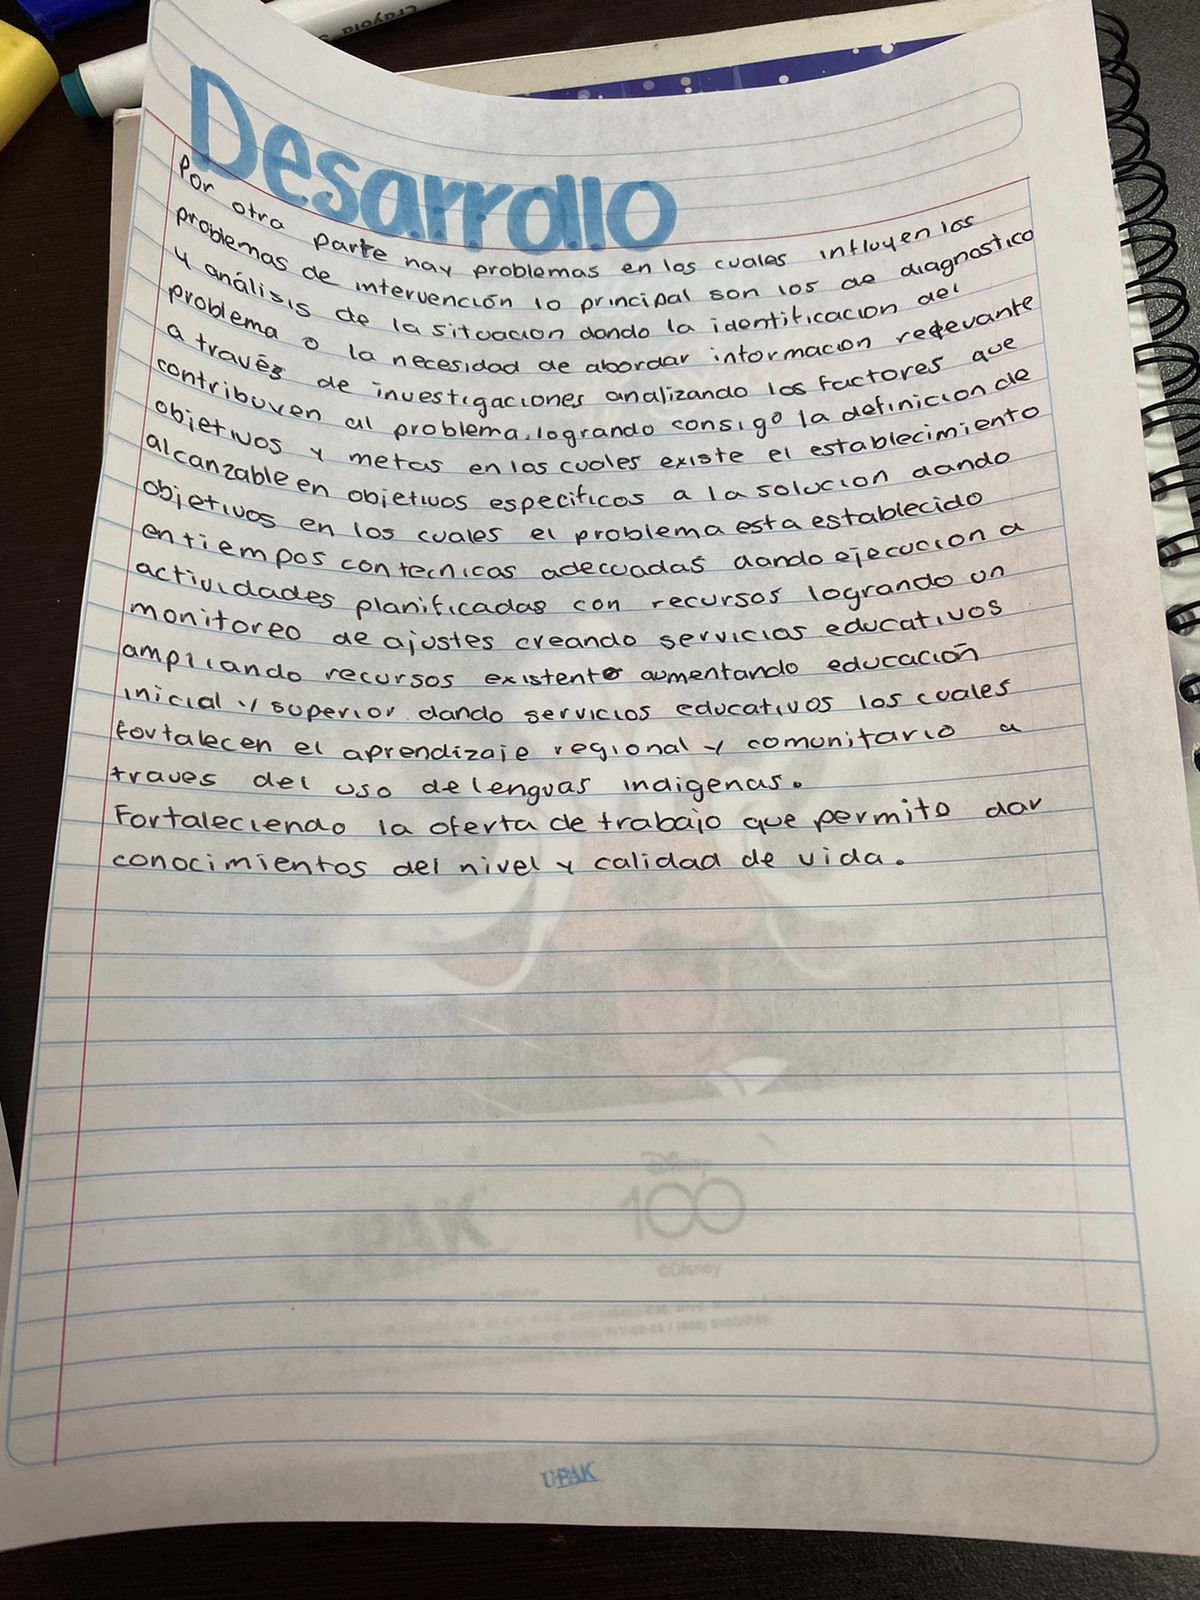 Crayola
Desarrollo
Por otra parte hay problemas en los cuales influyen los
problemas de intervención lo principal son los de diagnostico
y análisis de la situacion dando la identificacion del
problema o la necesidad de abordar informacion relevante
a través de investigaciones analizando los factores que
contribuyen al problema, logrando consigo la definicion de
objetivos y metas en las cuales existe el establecimiento
alcanzable en objetivos especificos a la solucion dando
objetivos en los cuales el problema esta establecido
en tiempos con tecnicas adecuadas dando ejecucion a
actividades planificadas con recursos logrando un
monitoreo de ajustes creando servicios educativos
ampliando recursos existente aumentando educación
inicial y superior dando servicios educativos los cuales
fortalecen el aprendizaje regional y comunitario a
traves del uso de lenguas indigenas.
Fortaleciendo la oferta de trabajo que permito dar
conocimientos del nivel y calidad de vida.
Disney
100
©Disney
UPAK